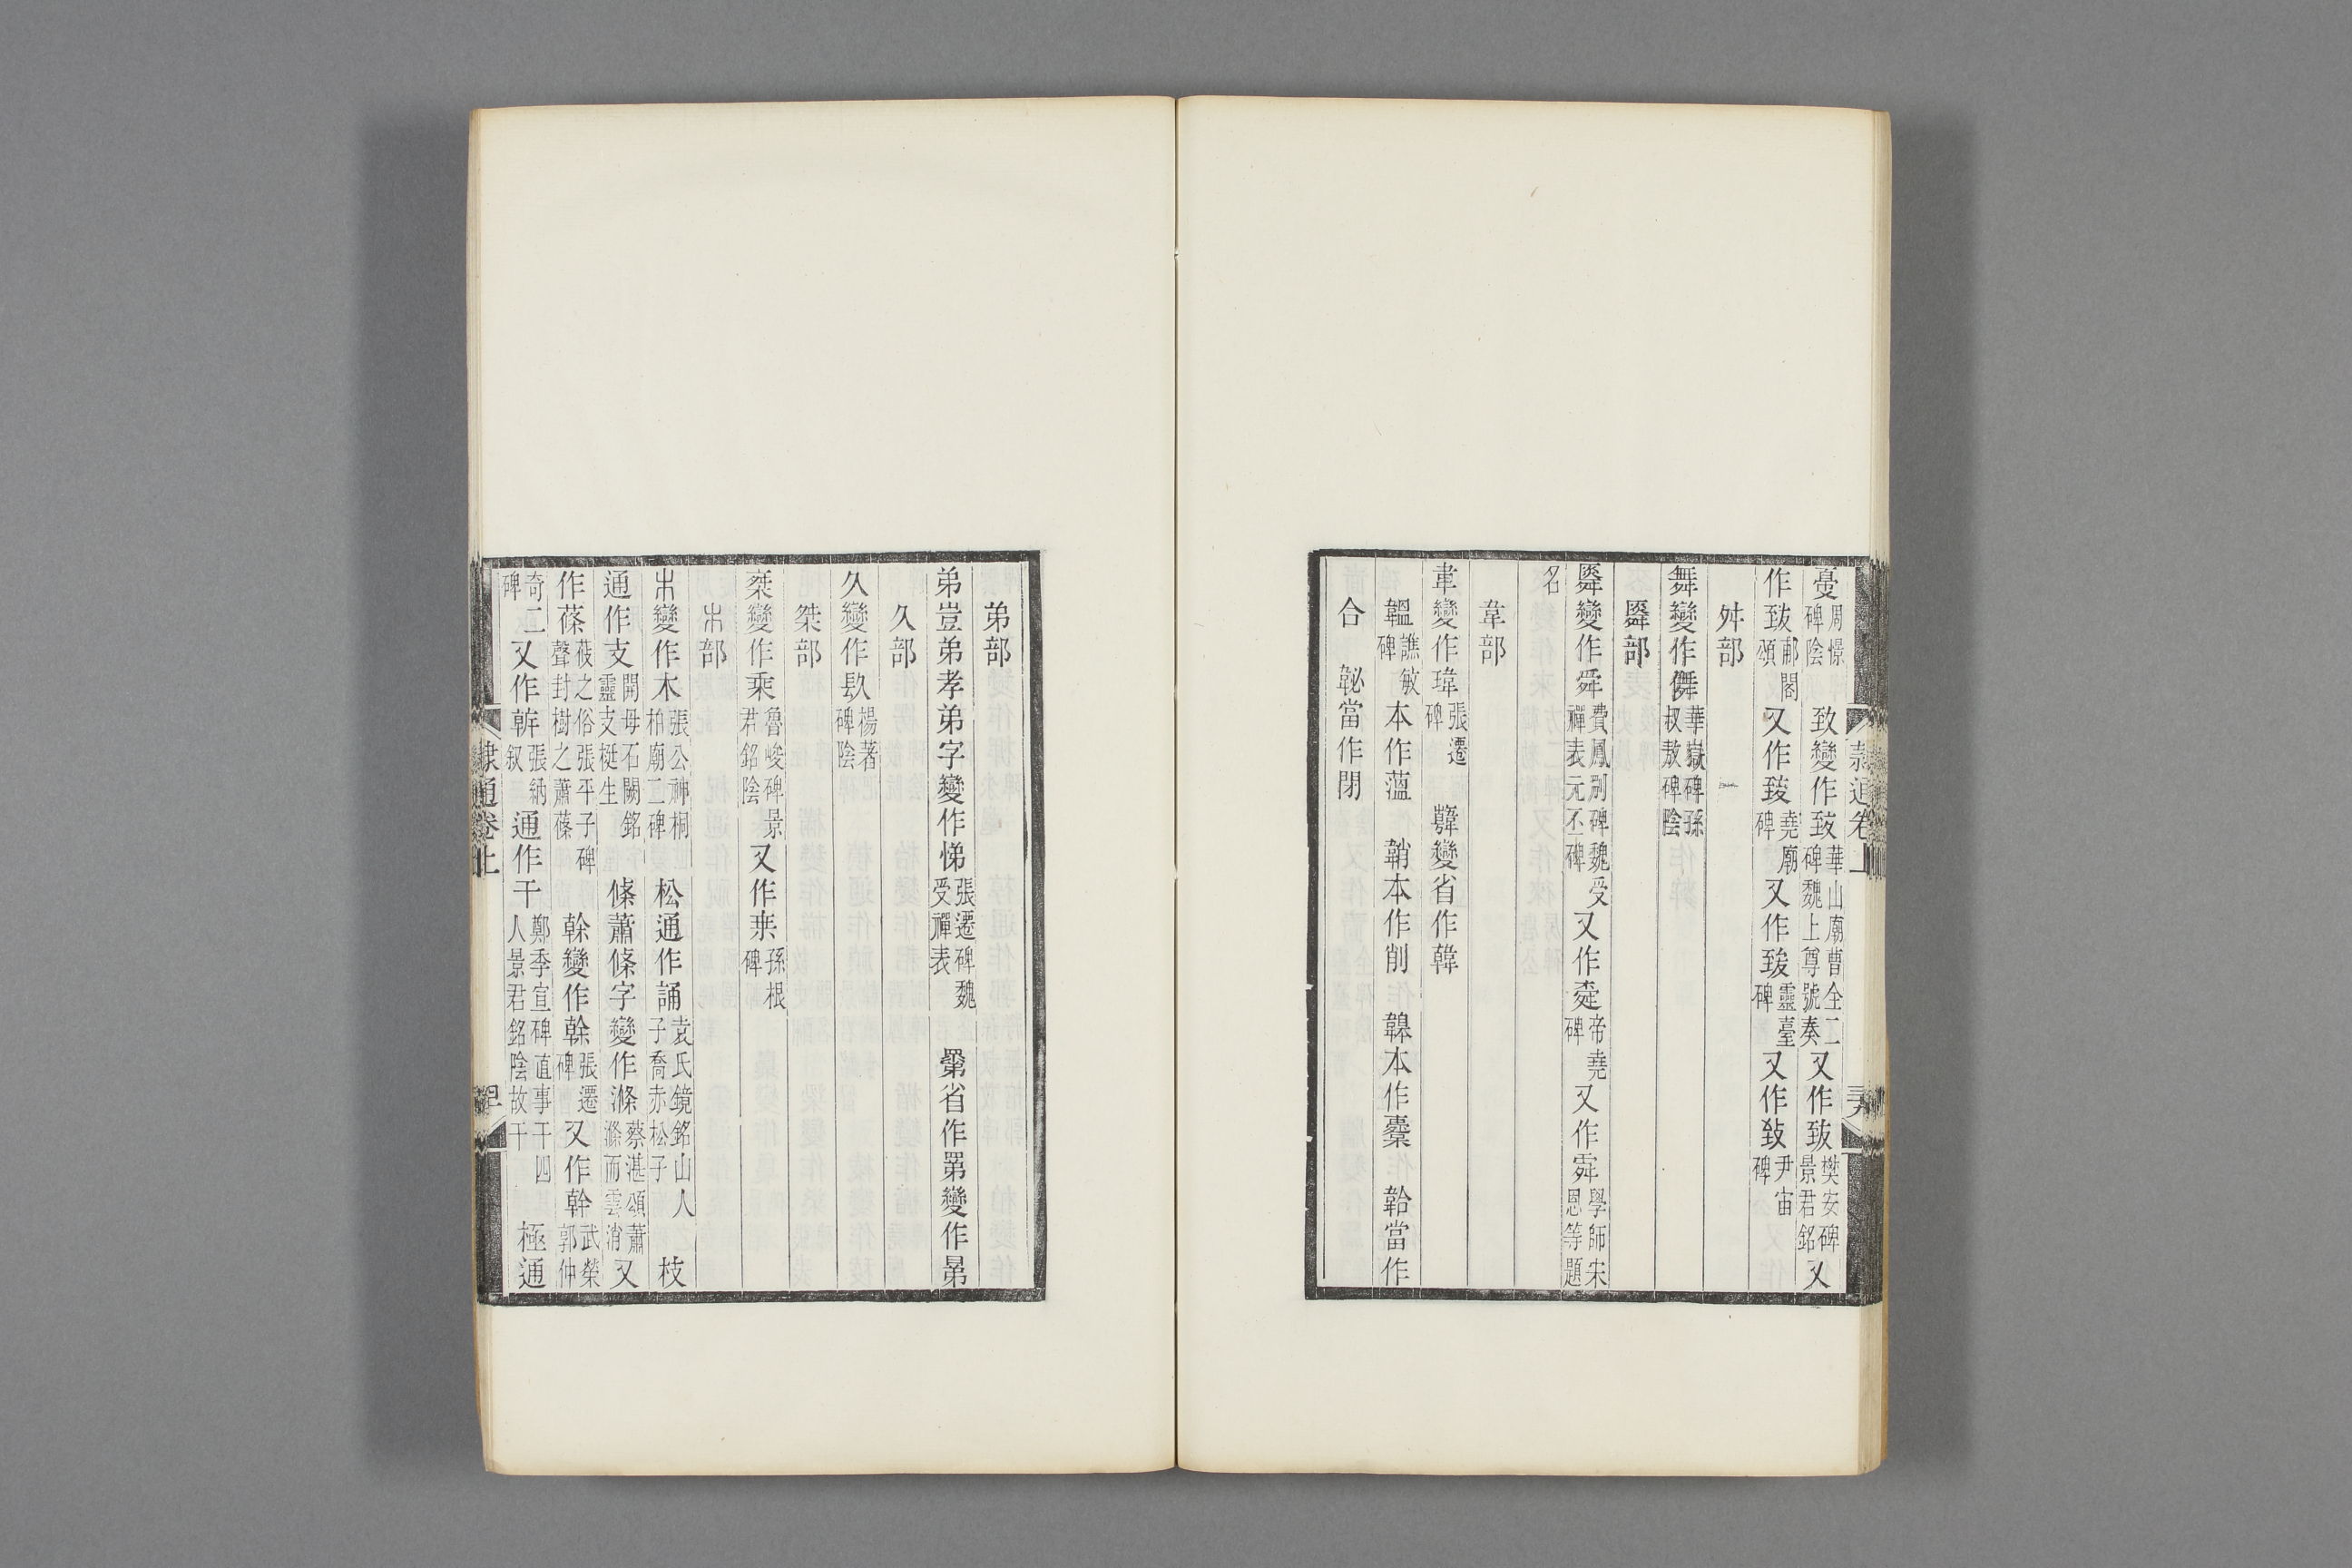 憂周憬碑陰 致變作致華山廟曹全二碑魏上尊號奏又作致樊安碑景君銘又
作致郙閣頌又作致堯廟碑又作致靈臺碑又作致尹宙碑
舛部
舞變作儛華嶽碑孫叔敖碑陰
䑞部
䑞變作舜費鳳別碑魏受禪表元丕碑又作帝堯碑又作學師宋恩等題
名
韋部
韋變作瑋張遷碑 變省作韓
韞譙敏碑本作薀 鞘本作削 本作櫜 韐當作
合 䪐當作閉
弟部
弟豈弟孝弟字變作悌張遷碑魏受禪表 省作變作
久部
久變作镹楊著碑陰
桀部
椉變作乘魯峻碑景君銘陰又作孫根碑
木部
木變作木張公神桐柏廟二碑 松通作誦袁氏鏡銘山人子喬赤松子 枝
通作支開母石闕銘靈支挺生 條蕭條字變作滌蔡湛頌蕭滌而雲消又
作蓧莜之俗張平子碑聲封樹之蕭蓧 榦變作幹張遷碑又作幹武榮郭仲
奇二碑又作張納敘 通作干鄭季宣碑直事干四人景君銘陰故干 極通
隸通卷上
隸通卷上